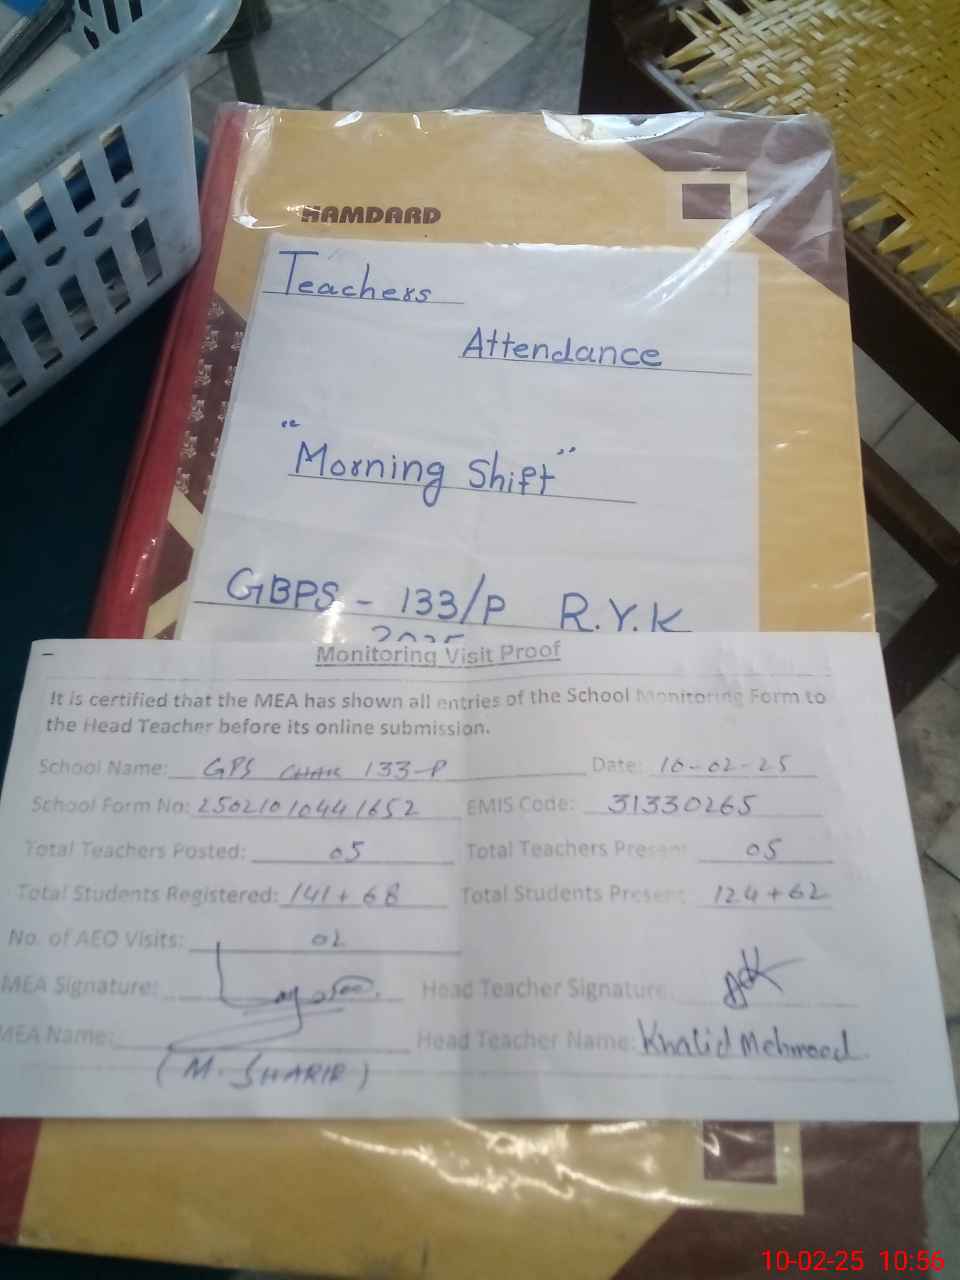 HAMDARD
Teachers
Attendance
"Morning Shift"
GBPS - 133/P R.Y.K
2025
Monitoring Visit Proof
It is certified that the MEA has shown all entries of the School Monitoring Form to
the Head Teacher before its online submission.
School Name: GPS CHAK 133-P Date: 10-02-25
School Form No: 25021010441652 EMIS Code: 31330265
Total Teachers Posted: 05 Total Teachers Present 05
Total Students Registered: 141+68 Total Students Present 124+62
No. of AEO Visits: 02
MEA Signature: Head Teacher Signature:
MEA Name: Head Teacher Name: Khalid Mehmood
(M. SHARIF)
10-02-25 10:56